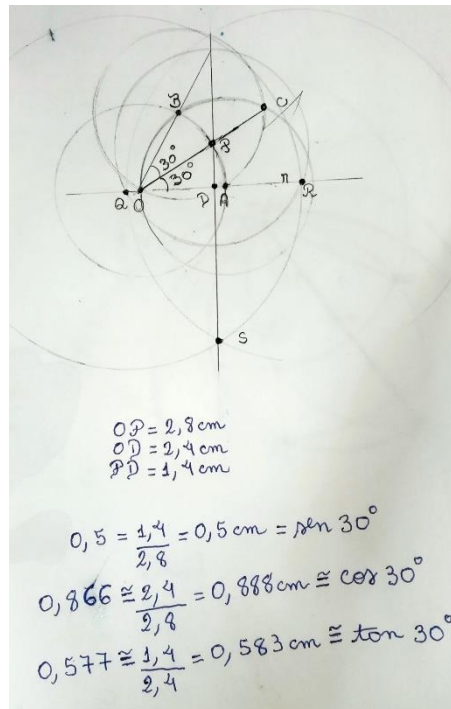 B
C
P
30°
30°
Q
O
D
A
n
R
S
OP = 2,8 cm
OD = 2,4 cm
PD = 1,4 cm
0,5 = 1,4/2,8 = 0,5 cm = sen 30°
0,866 ≅ 2,4/2,8 = 0,888 cm ≅ cos 30°
0,577 ≅ 1,4/2,4 = 0,583 cm ≅ ton 30°